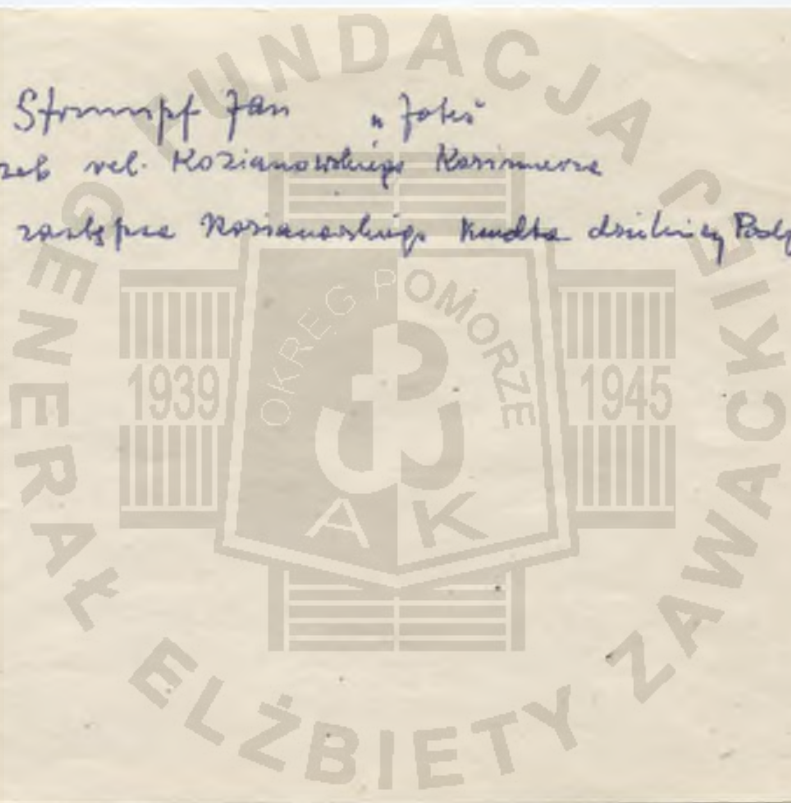 Strumpf Jan „Joteś"
zeb rel. Kozianowskiego Kazimierza
zastępca Kozianowskiego kmdta dzielnicy Podg
FUNDACJA
GENERAŁ ELŻBIETY ZAWACKIEJ
OKRĘG POMORZE
1939 1945
AK